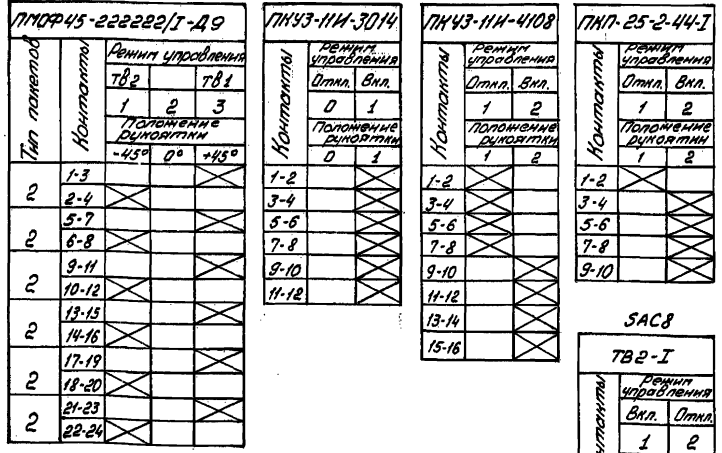 ПМОФ45-222222/I-Д9
Тип пакетов
Контакты
Режим управления
ТВ2 ТВ1
1 2 3
Положение
рукоятки
-45° 0° +45°
2
1-3
2-4
2
5-7
6-8
2
9-11
10-12
2
13-15
14-16
2
17-19
18-20
2
21-23
22-24
ПКУ3-11И-3014
Контакты
Режим
управления
Откл. Вкл.
0 1
Положение
рукоятки
0 1
1-2
3-4
5-6
7-8
9-10
11-12
ПКУ3-11И-4108
Контакты
Режим
управления
Откл. Вкл.
1 2
Положение
рукоятки
1 2
1-2
3-4
5-6
7-8
9-10
11-12
13-14
15-16
ПКП-25-2-44-I
Контакты
Режим
управления
Откл. Вкл.
1 2
Положение
рукоятки
1 2
1-2
3-4
5-6
7-8
9-10
SAC8
ТВ2-I
Режим
управления
Вкл. Откл.
1 2